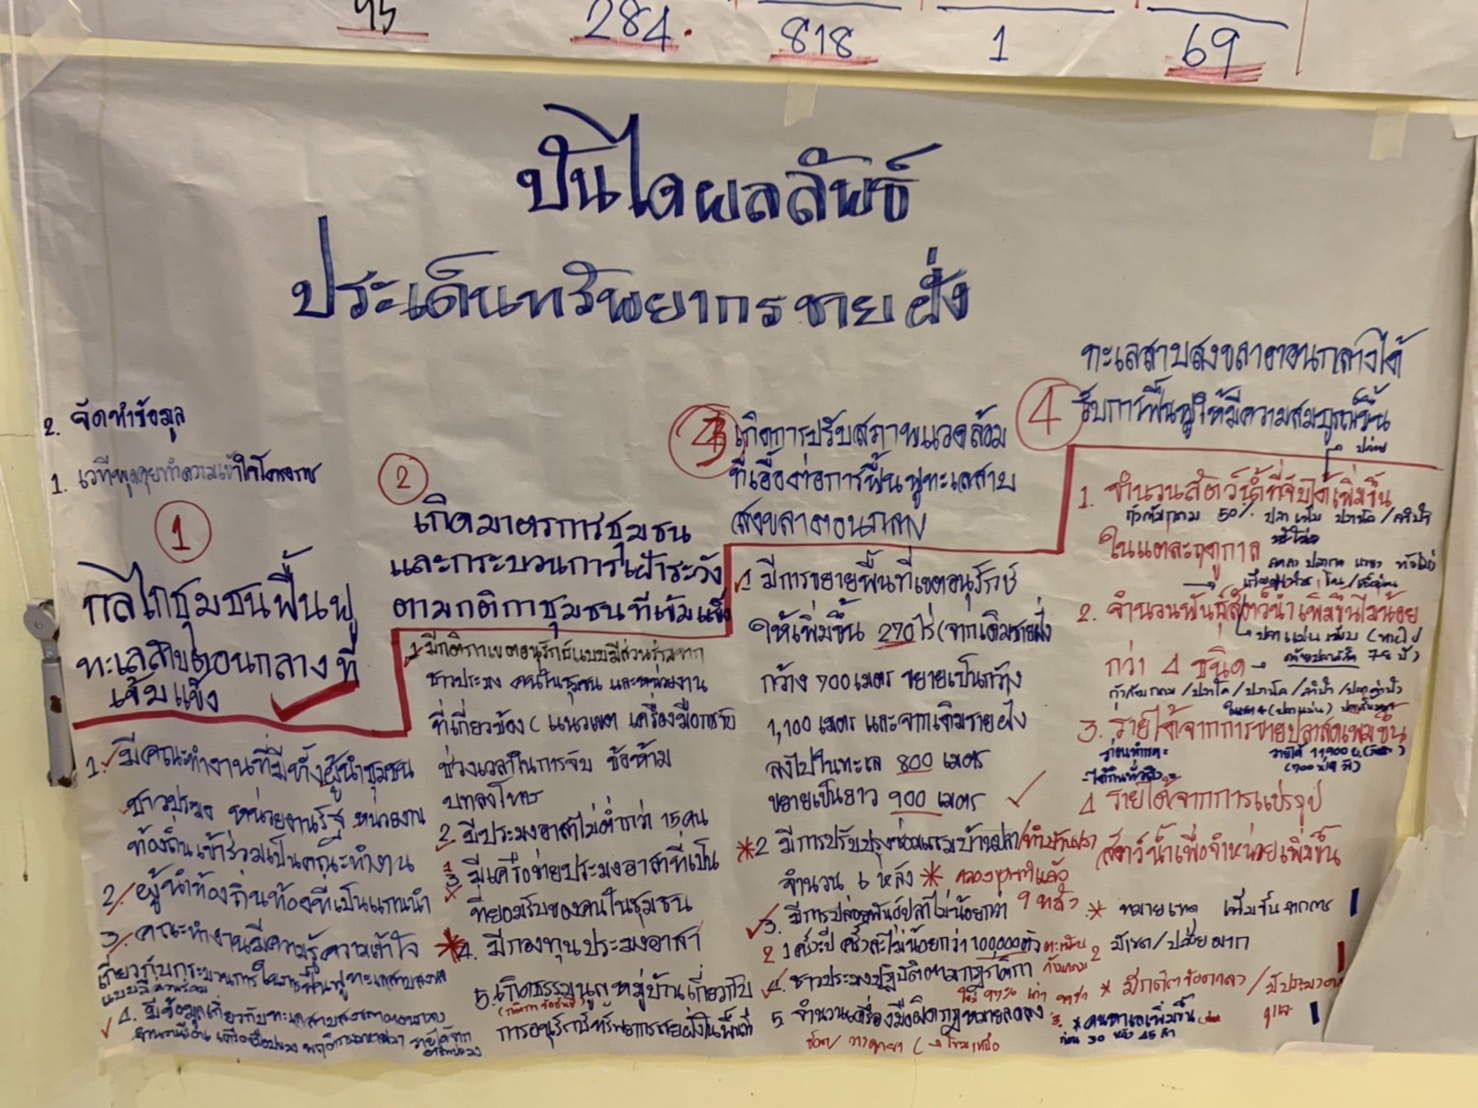 95
284.
818
1
69
ปันไดผลลัพธ์
ประเด็นทรัพยากรชายฝั่ง
2. จัดทำข้อมูล
1. เวทีพูดคุยทำความเข้าใจโครงการ
1
กลไกชุมชนฟื้นฟู
ทะเลสาบตอนกลางที่
เข้มแข็ง
1. มีคณะทำงานที่มีทั้งผู้นำชุมชน
ชาวประมง หน่วยงานรัฐ หน่วยงาน
ท้องถิ่นเข้าร่วมเป็นคณะทำงาน
2. ผู้นำท้องถิ่นท้องที่เป็นแกนนำ
3. คณะทำงานมีความรู้ความเข้าใจ
เกี่ยวกับกระบวนการ
4. มีข้อมูลเกี่ยวกับทะเลสาบสงขลาตอนกลาง
2
เกิดมาตรการชุมชน
และกระบวนการเฝ้าระวัง
ตามกติกาชุมชนที่เข้มแข็ง
1 มีกติกาเขตอนุรักษ์แบบมีส่วนร่วมจาก
ชาวประมง คนในชุมชน และหน่วยงาน
ที่เกี่ยวข้อง (แนวเขต เครื่องมือ
ช่วงเวลาในการจับ ข้อห้าม
บทลงโทษ
2. มีประมงอาสาไม่ต่ำกว่า 15 คน
3 มีเครือข่ายประมงอาสาที่เป็น
ที่ยอมรับของคนในชุมชน
4. มีกองทุนประมงอาสา
5. เกิดธรรมนูญหมู่บ้านเกี่ยวกับ
การอนุรักษ์ทรัพยากรชายฝั่งในพื้นที่
3
เกิดการปรับสภาพแวดล้อม
ที่เอื้อต่อการฟื้นฟูทะเลสาบ
สงขลาตอนกลาง
1 มีการขยายพื้นที่เขตอนุรักษ์
ให้เพิ่มขึ้น 270 ไร่ (จากเดิมชายฝั่ง
กว้าง 700 เมตร ขยายเป็นกว้าง
1,100 เมตร และจากเดิมชายฝั่ง
ลงไปในทะเล 800 เมตร
ขยายเป็นยาว 900 เมตร
*2 มีการปรับปรุงซ่อมแซมบ้านปลา
จำนวน 6 หลัง *
3. มีการปล่อยพันธุ์ปลาไม่น้อยกว่า
2 ครั้ง:ปี ครั้งละไม่น้อยกว่า 100,000 ตัว
4. ชาวประมงปฏิบัติตามกฎกติกา
5 จำนวนเครื่องมือผิดกฎหมายลดลง
4
ทะเลสาบสงขลาตอนกลางได้
รับการฟื้นฟูให้มีความสมบูรณ์ขึ้น
1. จำนวนสัตว์น้ำที่จับได้เพิ่มขึ้น
ในแต่ละฤดูกาล
2. จำนวนพันธุ์สัตว์น้ำเพิ่มขึ้นไม่น้อย
กว่า 4 ชนิด
3. รายได้จากการขายปลาสดเพิ่มขึ้น
4 รายได้จากการแปรรูป
สัตว์น้ำเพื่อจำหน่ายเพิ่มขึ้น
* หมายเหตุ เพิ่มขึ้นจากการ
2 มีเขต/ปล่อยมาก
* คนหาเลเพิ่มขึ้น
ก่อน 30 หลัง 45 ลำ